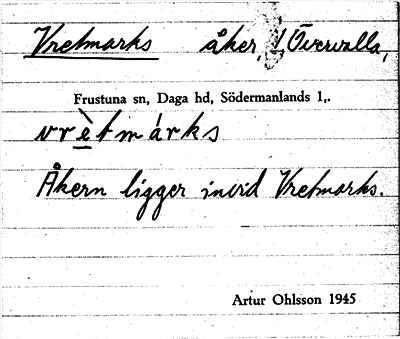 Vretmarks åker, Övervalla,
Frustuna sn, Daga hd, Södermanlands l,.
vrètmárks
Åkern ligger invid Vretmarks.
Artur Ohlsson 1945